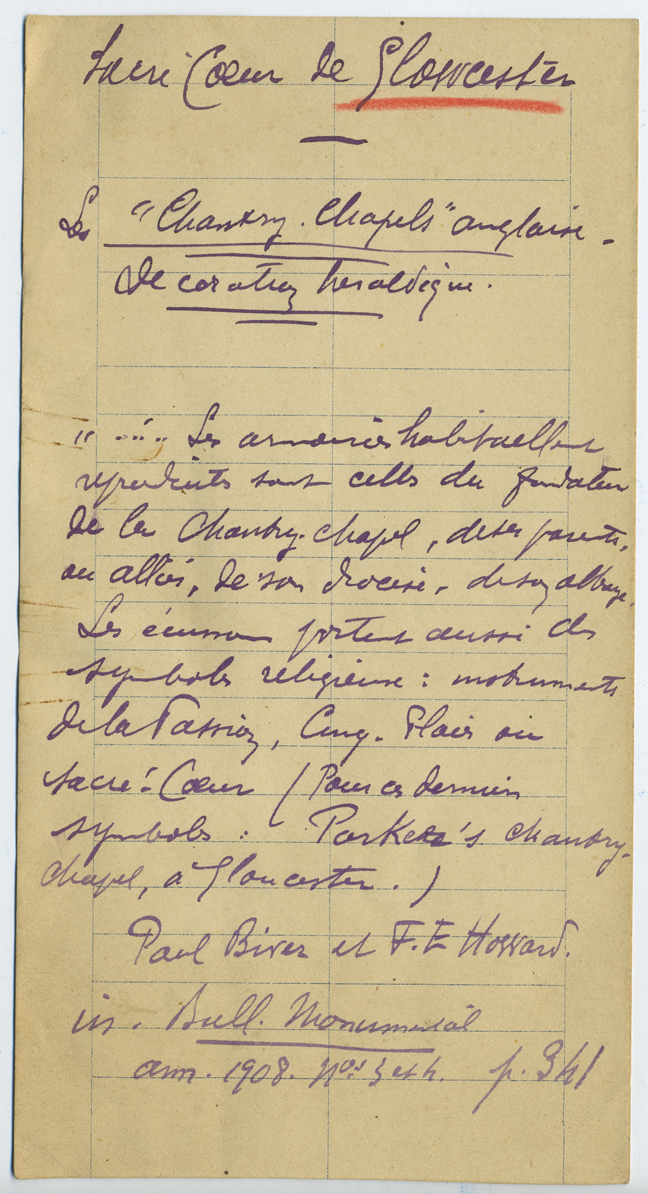 Sacré Cœur de Gloucester
Les "Chantry-Chapels" anglaise.
Décoration héraldique.
"..... Les armoiries habituellement
reproduites sont celles du fondateur
de la Chantry-chapel, de ses parents,
ou alliés, de son diocèse, de son abbaye.
Les écussons portent aussi des
symboles religieux : instruments
de la Passion, Cinq-Plaies ou
Sacré-Cœur (Pour ces derniers
symboles : Parker's chantry-
chapel, à Gloucester.)
Paul Biver et F.E Howard.
in. Bull. Monumental
ann. 1908. Nos 3 et 4. p. 341